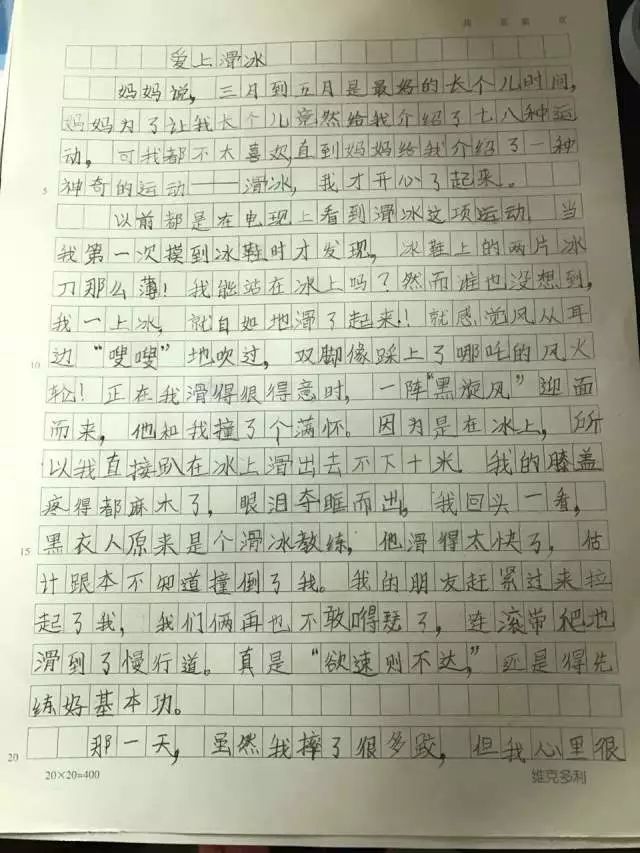 爱上滑冰
妈妈说，三月到五月是最好的长个儿时间，
妈妈为了让我长个儿竟然给我介绍了七八种运
动，可我都不太喜欢，直到妈妈给我介绍了一种
5 神奇的运动——滑冰，我才开心了起来。
以前都是在电现上看到滑冰这项运动 当
我第一次摸到冰鞋时才发现，冰鞋上的两片冰
刀那么薄！我能站在冰上吗？然而谁也没想到，
我一上冰，就自如地滑了起来！就感觉风从耳
10 边“嗖嗖”地吹过，双脚像踩上了哪吒的风火
轮！正在我滑得很得意时，一阵“黑旋风”迎面
而来，他和我撞了个满怀。因为是在冰上，所
以我直接趴在冰上滑出去不下十米 我的膝盖
疼得都麻木了，眼泪夺眶而出，我回头一看，
15 黑衣人原来是个滑冰教练，他滑得太快了，估
计跟本不知道撞倒了我。我的朋友赶紧过来拉
起了我，我们俩再也不敢嘚瑟了，连滚带爬地
滑到了慢行道。真是“欲速则不达，”还是得先
练好基本功。
20 那一天，虽然我摔了很多跤，但我心里很
20×20=400 维克多利